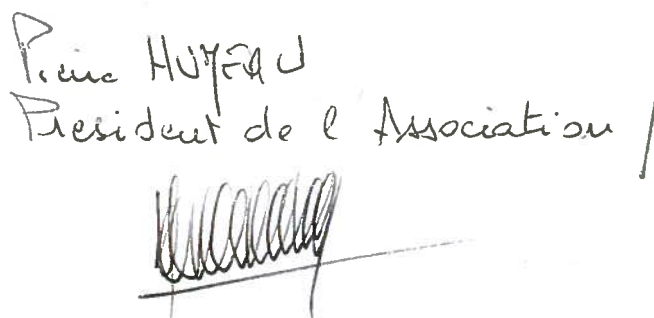 Pierre HUMEAU
President de l'Association